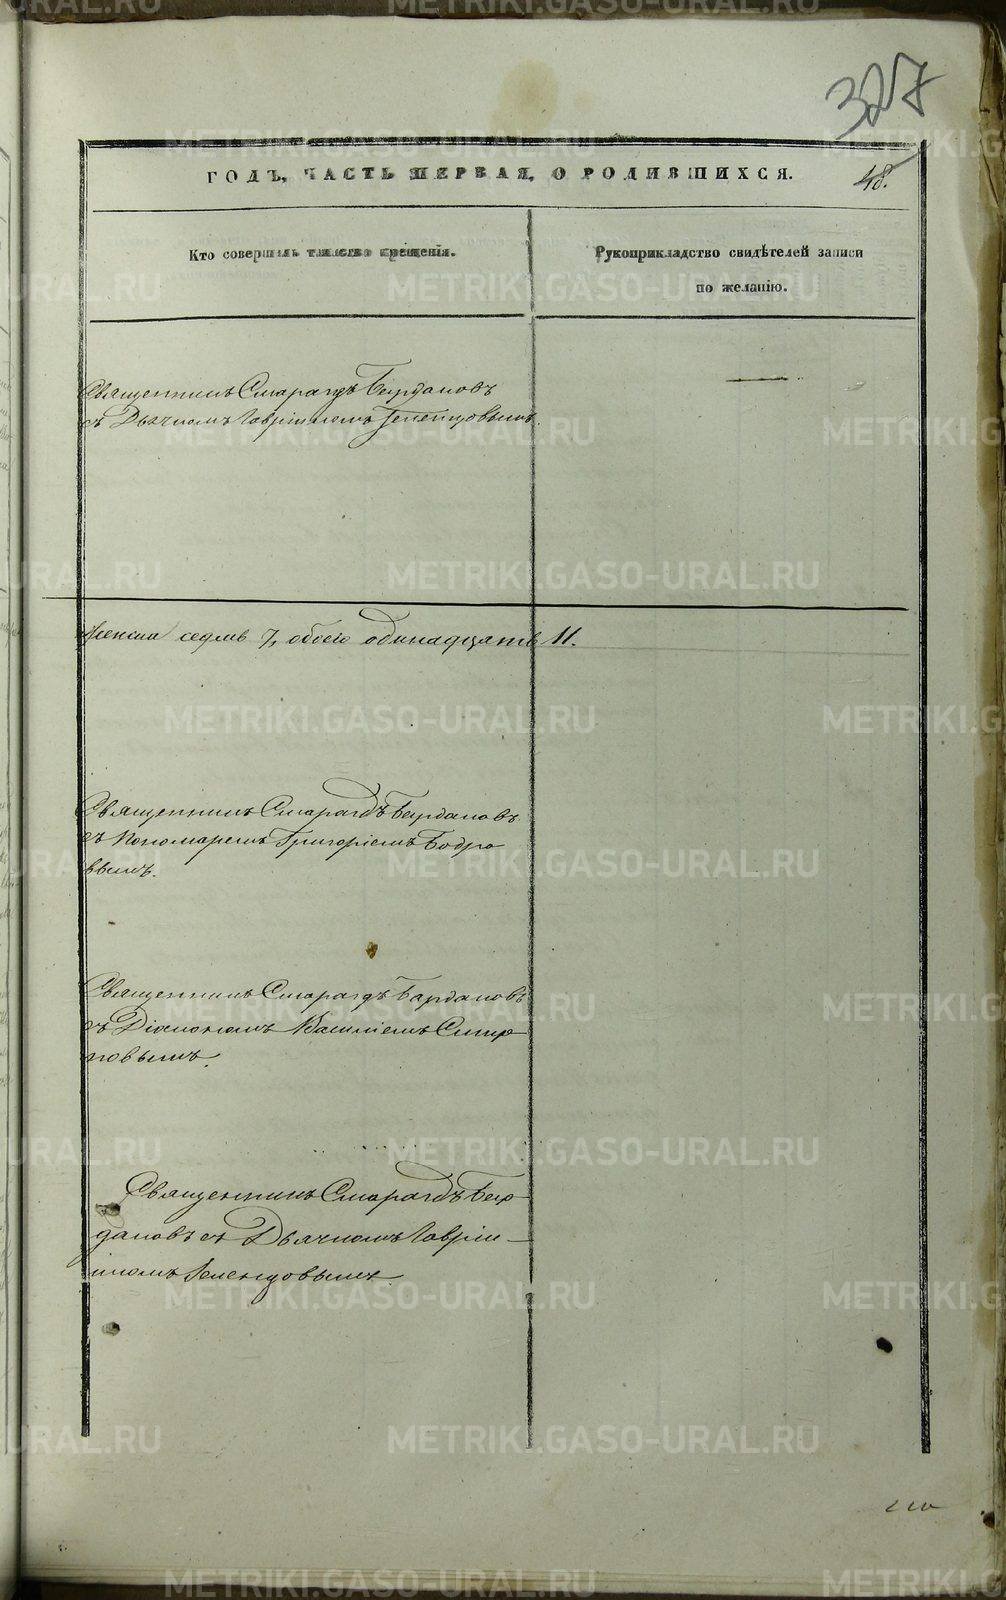 327
ГОДЪ, ЧАСТЬ ПЕРВАЯ, О РОДИВШИХСЯ.
48.
Кто совершалъ таинство крещенія.
Рукоприкладство свидѣтелей записи
по желанію.
Священникъ Смарагдъ Бурдаковъ
съ Дьячкомъ Гавріиломъ
женска седмь 7, обоего одинадцать 11.
Священникъ Смарагдъ Бурдаковъ
съ Пономаремъ Григоріемъ Бодро
вымъ.
Священникъ Смарагдъ Бурдаковъ
съ Діакономъ Василіемъ Смир
новымъ.
Священникъ Смарагдъ Бур
даковъ съ Дьячкомъ Гаврiи
ломъ
METRIKI.GASO-URAL.RU